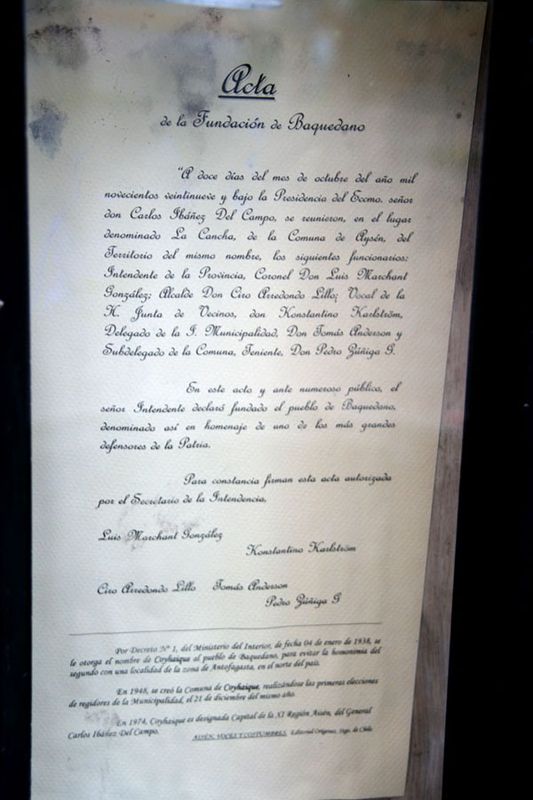 Acta
de la Fundación de Baquedano
"A doce días del mes de octubre del año mil
novecientos veintinueve y bajo la Presidencia del Excmo. señor
don Carlos Ibáñez Del Campo, se reunieron, en el lugar
denominado La Cancha, de la Comuna de Aysén, del
Territorio del mismo nombre, los siguientes funcionarios:
Intendente de la Provincia, Coronel Don Luis Marchant
González; Alcalde Don Ciro Arredondo Lillo; Vocal de la
H. Junta de Vecinos, don Konstantino Karlström,
Delegado de la I. Municipalidad, Don Tomás Anderson y
Subdelegado de la Comuna, Teniente, Don Pedro Zúñiga G.
En este acto y ante numeroso público, el
señor Intendente declaró fundado el pueblo de Baquedano,
denominado así en homenaje de uno de los más grandes
defensores de la Patria.
Para constancia firman esta acta autorizada
por el Secretario de la Intendencia.
Luis Marchant González
Konstantino Karlström
Ciro Arredondo Lillo Tomás Anderson
Pedro Zúñiga G
Por Decreto Nº 1, del Ministerio del Interior, de fecha 04 de enero de 1938, se
le otorga el nombre de Coyhaique al pueblo de Baquedano, para evitar la homonimia del
segundo con una localidad de la zona de Antofagasta, en el norte del país.
En 1948, se creó la Comuna de Coyhaique, realizándose las primeras elecciones
de regidores de la Municipalidad, el 21 de diciembre del mismo año.
En 1974, Coyhaique es designada Capital de la XI Región Aisén, del General
Carlos Ibáñez Del Campo. AISÉN, VOCES Y COSTUMBRES. Editorial Orígenes, Stgo. de Chile